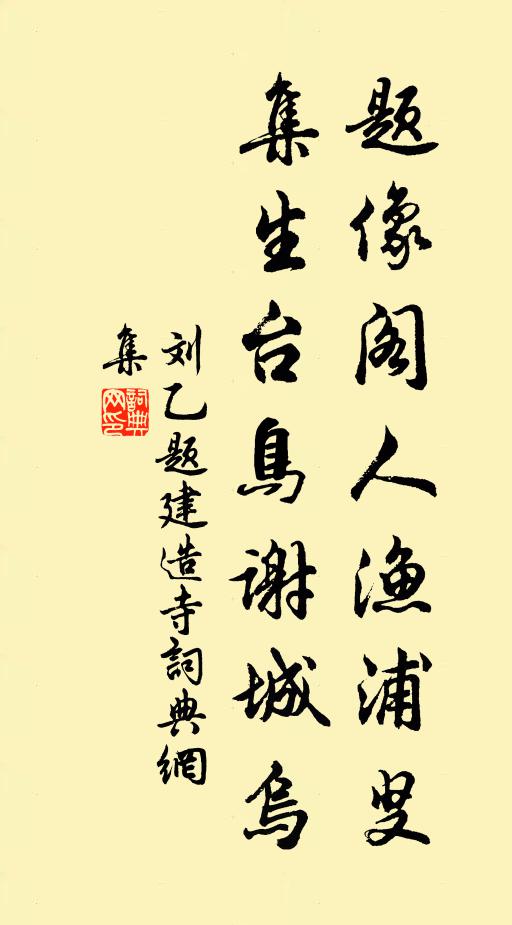 题像阁人渔浦叟
集生台鸟谢城乌
刘乙题建造寺詞典網
集
詞典
网印